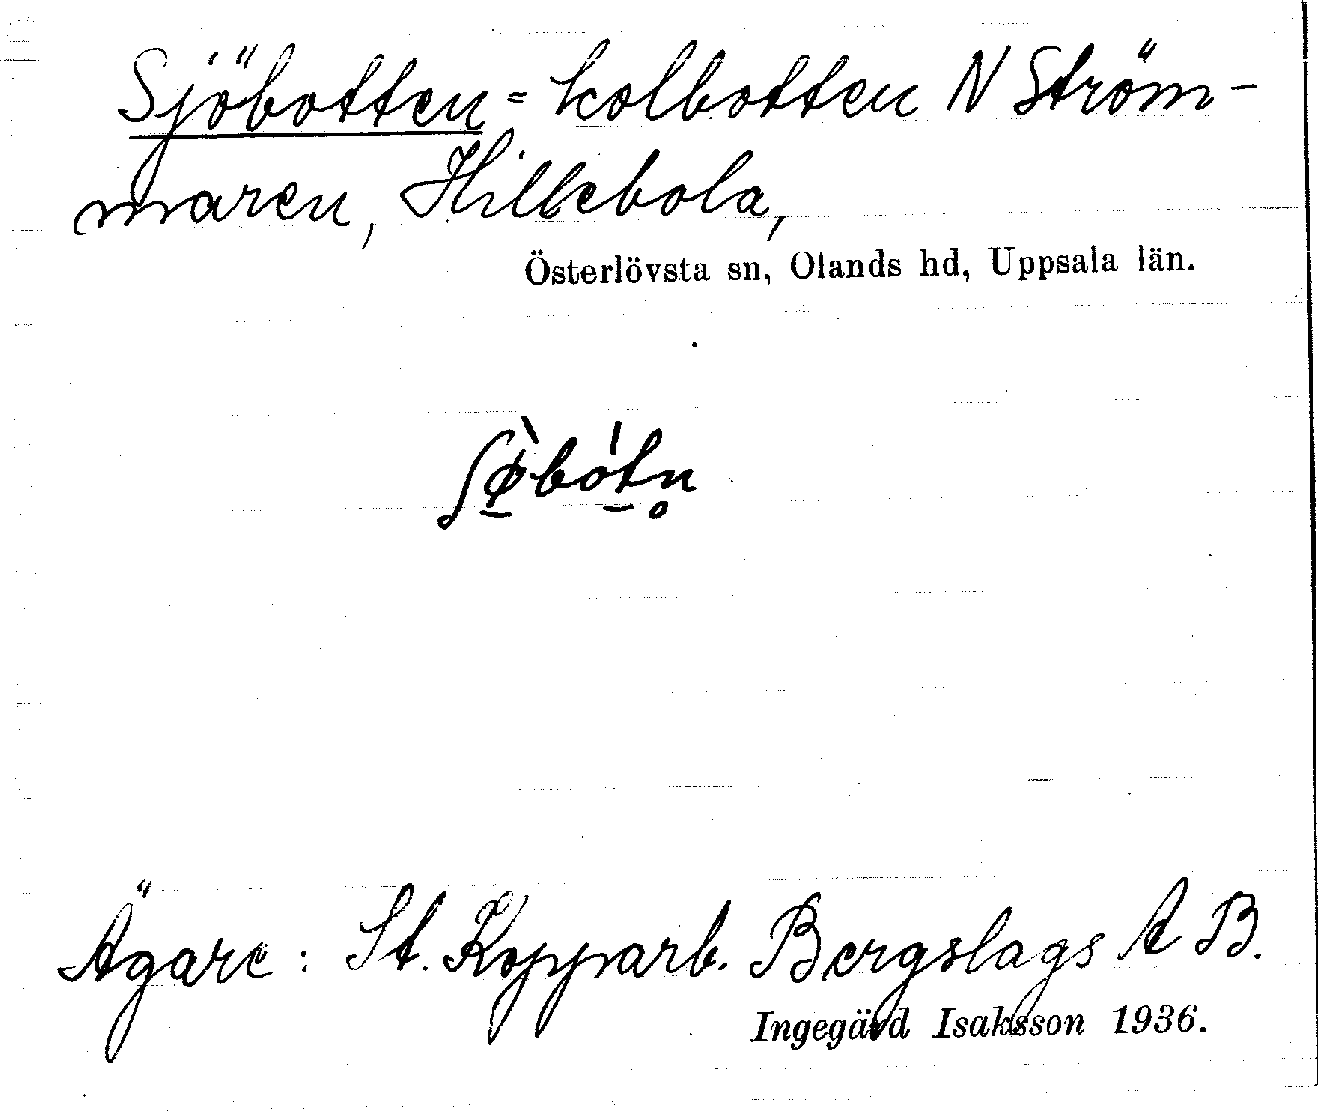 Sjöbotten = kolbotten N Ström-
maren, Hillebola,
Österlövsta sn, Olands hd, Uppsala län.
ʃø̠̀bó̠tn̥
Ägare: St. Kopparb. Bergslags A B.
Ingegärd Isaksson 1936.